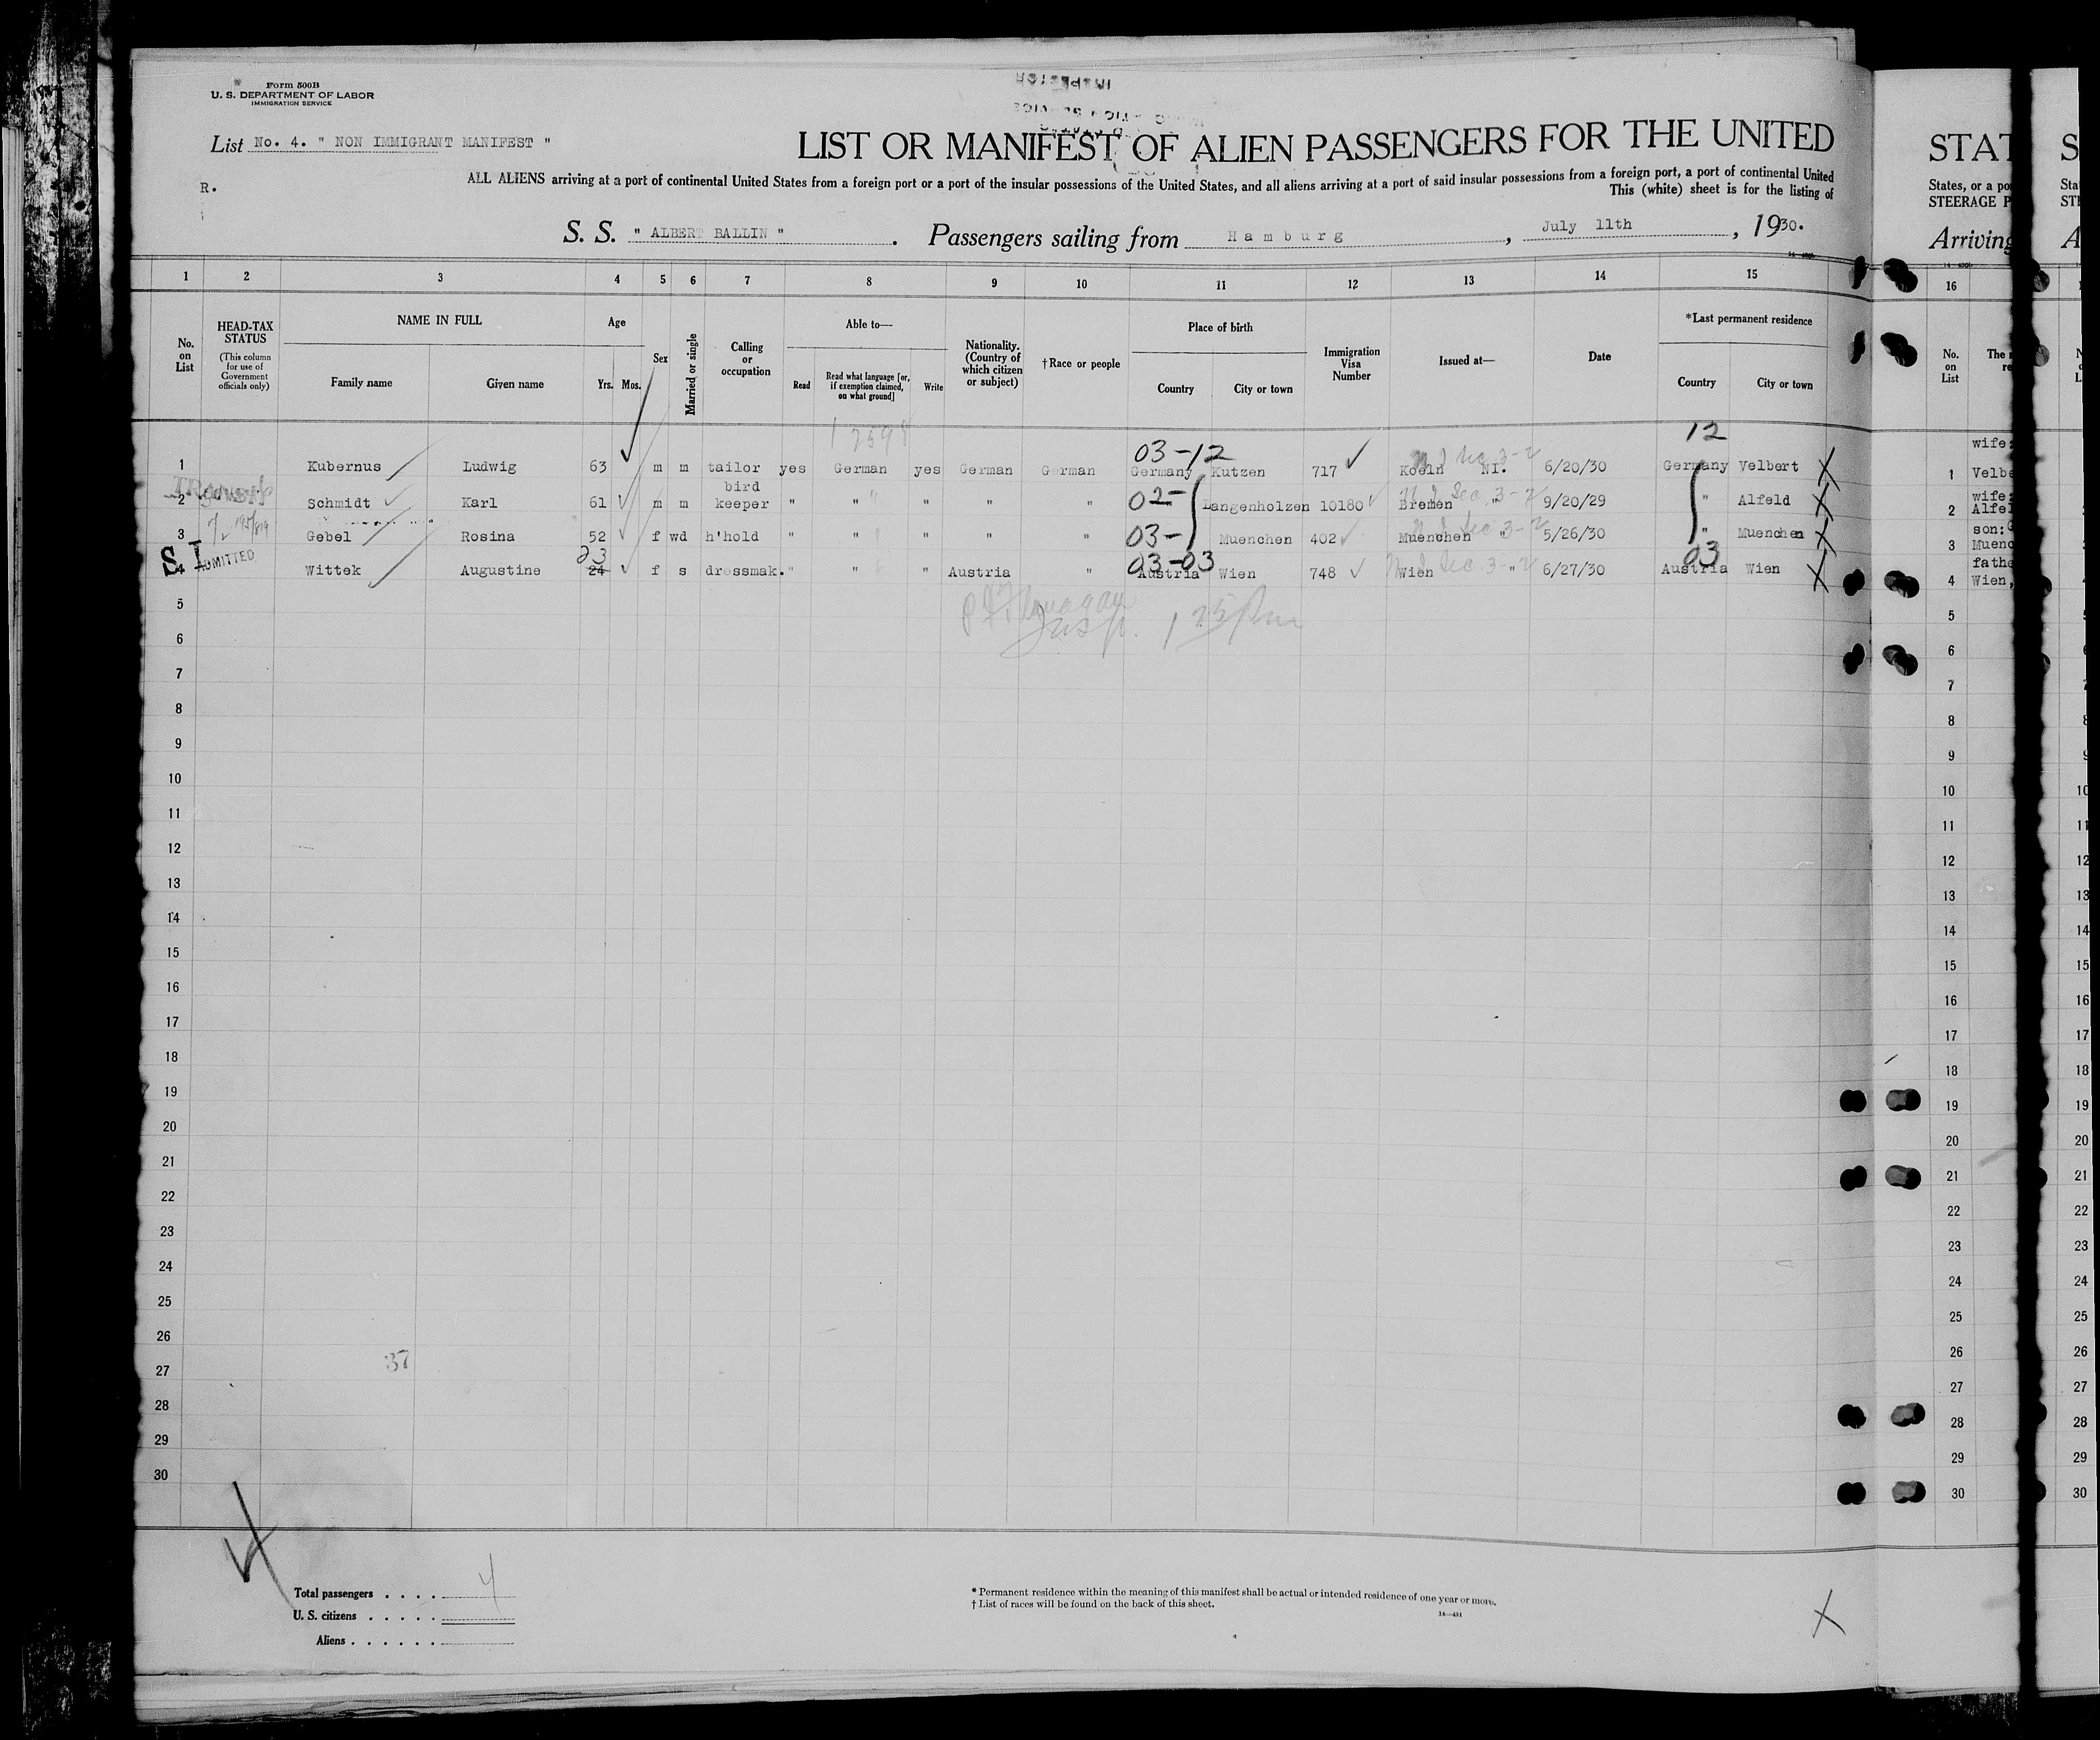 Form 500B
U. S. DEPARTMENT OF LABOR
IMMIGRATION SERVICE
List No. 4. " NON IMMIGRANT MANIFEST "
R.
LIST OR MANIFEST OF ALIEN PASSENGERS FOR THE UNITED
ALL ALIENS arriving at a port of continental United States from a foreign port or a port of the insular possessions of the United States, and all aliens arriving at a port of said insular possessions from a foreign port, a port of continental United
This (white) sheet is for the listing of
S. S. " ALBERT BALLIN " . Passengers sailing from Hamburg , July 11th , 1930.
1 2 3 4 5 6 7 8 9 10 11 12 13 14 15
No. on List
HEAD-TAX STATUS (This column for use of Government officials only)
NAME IN FULL Family name Given name
Age Yrs. Mos.
Sex
Married or single
Calling or occupation
Able to— Read Read what language [or, if exemption claimed, on what ground] Write
Nationality. (Country of which citizen or subject)
†Race or people
Place of birth Country City or town
Immigration Visa Number
Issued at—
Date
*Last permanent residence Country City or town
03-12 12
1 Kubernus Ludwig 63 m m tailor yes German yes German German Germany Kutzen 717 Koeln NI. 6/20/30 Germany Velbert X
2 Schmidt Karl 61 m m bird keeper " " " " " 02- Langenholzen 10180 Bremen " 9/20/29 " Alfeld X
3 Gebel Rosina 52 f wd h'hold " " " " " 03- Muenchen 402 Muenchen " 5/26/30 " Muenchen X
S I ADMITTED
23 03-03 03
4 Wittek Augustine 24 f s dressmak. " " " Austria " Austria Wien 748 Wien " 6/27/30 Austria Wien X
5
6
7
8
9
10
11
12
13
14
15
16
17
18
19
20
21
22
23
24
25
26
27
28
29
30
37
Total passengers . . . . 4
U. S. citizens . . . . .
Aliens . . . . . .
* Permanent residence within the meaning of this manifest shall be actual or intended residence of one year or more.
† List of races will be found on the back of this sheet.
14—431
X
STAT
States, or a po
STEERAGE P
Arriving
16
No. on List
The
wife:
1 Velbe
wife:
2 Alfel
son:
3 Muenc
fathe
4 Wien,
5
6
7
8
9
10
11
12
13
14
15
16
17
18
19
20
21
22
23
24
25
26
27
28
29
30